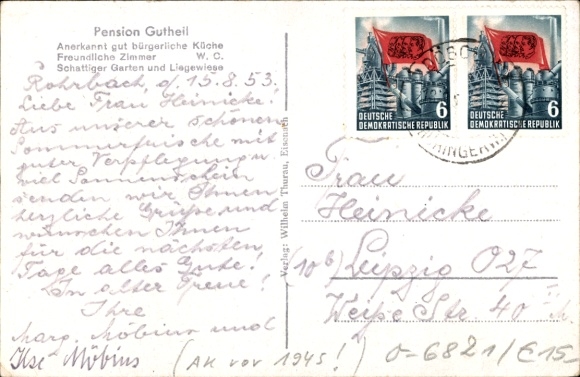 Pension Gutheil
Anerkannt gut bürgerliche Küche
Freundliche Zimmer W. C.
Schattiger Garten und Liegewiese
Rohrbach, d. 15.8.53.
Liebe Frau Heinicke!
Aus unserer schönen
Sommerfrische mit
guter Verpflegung u.
viel Sonnenschein
senden wir Ihnen
herzliche Grüße und
wünschen Ihnen
für die nächsten
Tage alles Gute!
In alter Treue!
Ihre
Marg. Möbius und
Ilse Möbius
(AK vor 1945!)
Verlag: Wilhelm Thurau, Eisenach
6
DEUTSCHE
DEMOKRATISCHE REPUBLIK
6
DEUTSCHE
DEMOKRATISCHE REPUBLIK
Frau
Heinicke
(10b) Leipzig O27
Weiße Str. 40
0-6821/€15,-